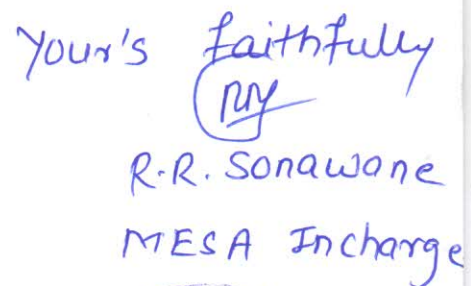 Your's faithfully
R.R. Sonawane
MESA Incharge